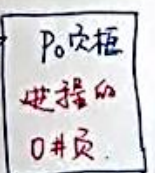 P₀页框
进程的
0#页